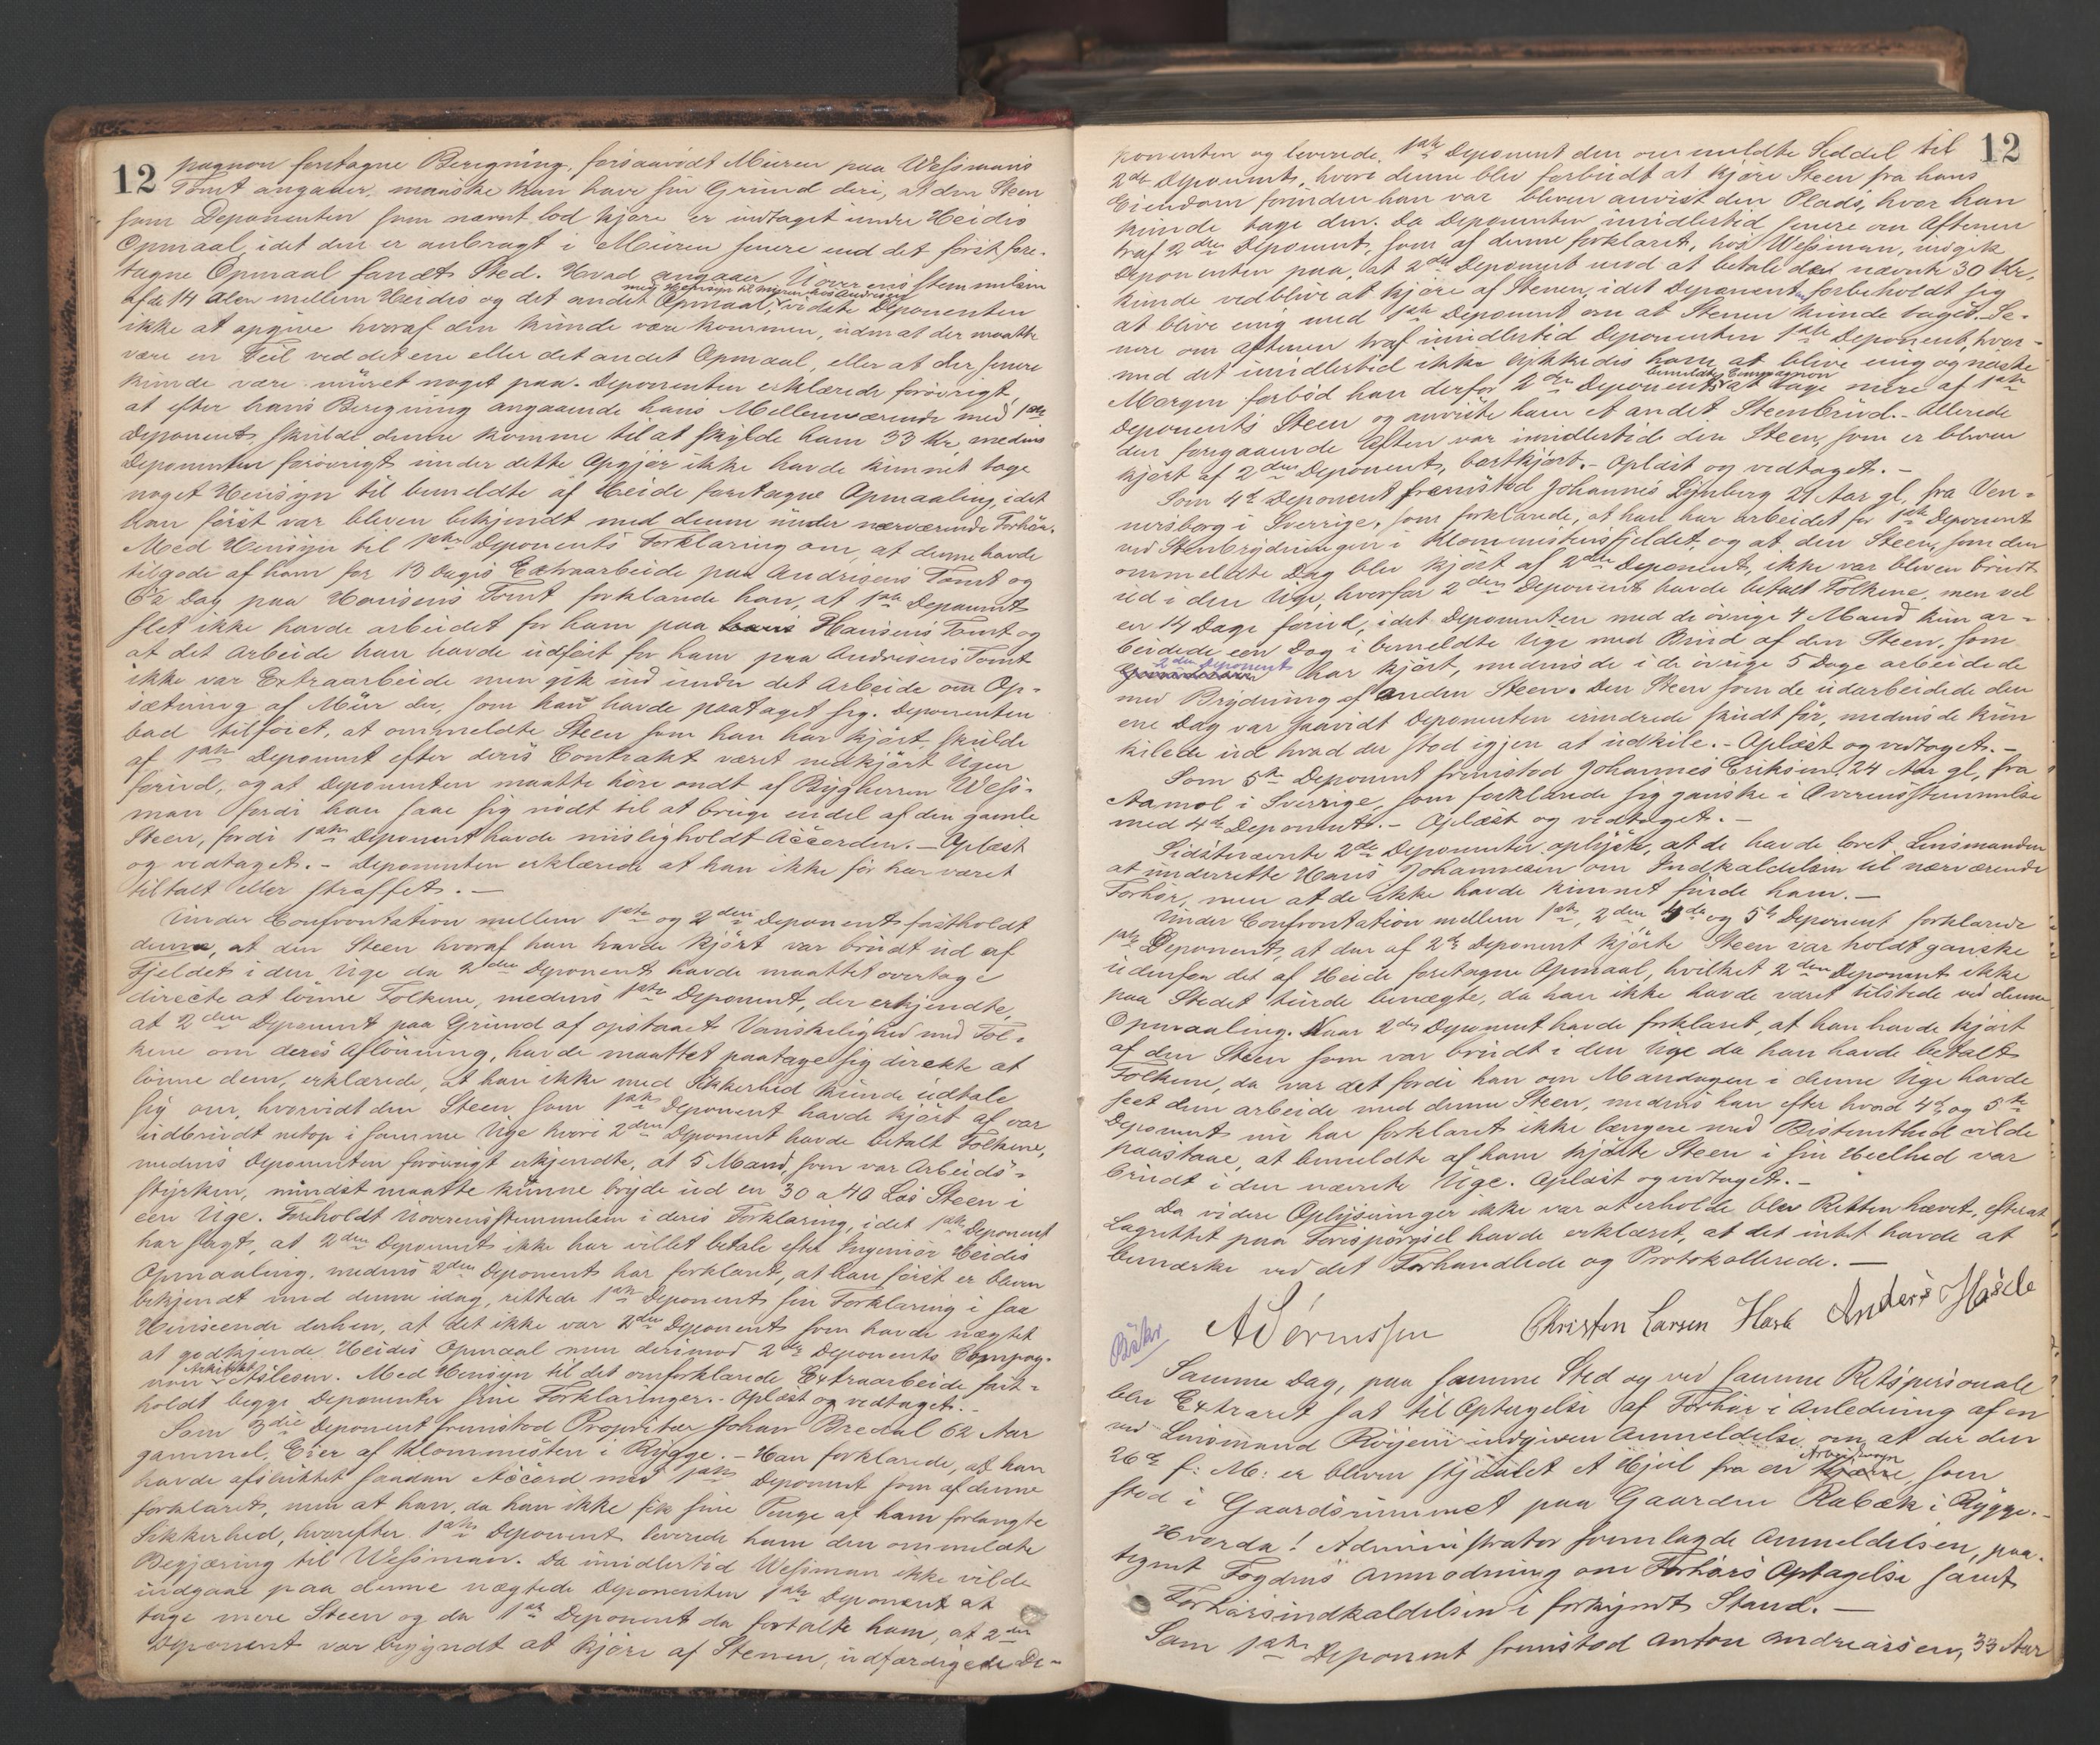 12
pagnon foretagne Beregning, forsaavidt Muren paa Wessmans
Tomt angaaer, maaske kan have sin Grund deri, at den Steen
som Deponenten som nævnt lod kjøre er indtaget under Heides
Opmaal, idet den er anbragt i Muren senere end det først fore-
tagne Opmaal fandt Sted. Hvad angaaer Uoverensstemmelsen
af de 14 Alen mellem Heides og det andet Opmaal, med Hensyn til Muren hos Andresen vidste Deponenten
ikke at opgive hvoraf den kunde være kommen, uden at der maatte
være en Feil ved det ene eller det andet Opmaal, eller at der senere
kunde være muret noget paa. Deponenten erklærede forøvrigt,
at efter hans Beregning angaaende hans Mellemværende med 1ste
Deponent, skulde denne komme til at skylde ham 33 Kr, medens
Deponenten forøvrigt under dette Opgjør ikke havde kunnet tage
noget Hensyn til bemeldte af Heide foretagne Opmaaling, idet
han først var bleven bekjendt med denne under nærværende Forhør.
Med Hensyn til 1ste Deponents Forklaring om, at denne havde
tilgode af ham for 13 Dages Extraarbeide paa Andresens Tomt og
6½ Dag paa Hansens Tomt forklarede han, at 1ste Deponent
slet ikke havde arbeidet for ham paa hans Hansens Tomt og
at det Arbeide han havde udført for ham paa Andresens Tomt
ikke var Extraarbeide men gik ind under det Arbeide om Op-
sætning af Mur der, som han havde paataget sig. Deponenten
bad tilføiet, at ommeldte Steen som han har kjørt, skulde
af 1ste Deponent efter deres Contrakt været nedkjørt Ugen
forud, og at Deponenten maatte høre ondt af Bygherren Wess-
man fordi han saae sig nødt til at bruge endel af den gamle
Steen, fordi 1ste Deponent havde misligholdt Accorden. – Oplæst
og vedtaget. – Deponenten erklærede at han ikke før har været
tiltalt eller straffet. –
Under Confrontation mellem 1ste og 2den Deponent fastholdt
denne, at den Steen hvoraf han havde kjørt var brudt ud af
Fjeldet i den Uge da 2den Deponent havde maattet overtage
directe at lønne Folkene, medens 1ste Deponent, der erkjendte,
at 2den Deponent paa Grund af opstaaet Vanskelighed med Fol-
kene om deres Aflønning, havde maattet paatage sig direkte at
lønne dem, erklærede, at han ikke med Sikkerhed kunde udtale
sig om, hvorvidt den Steen som 1ste Deponent havde kjørt af var
udbrudt netop i samme Uge hvori 2den Deponent havde betalt Folkene,
medens Deponenten forøvrigt erkjendte, at 5 Mand, som var Arbeids-
styrken, mindst maatte kunne bryde ud en 30 a 40 Læs Steen i
een Uge. Foreholdt Uoverensstemmelsen i deres Forklaring, idet 1ste Deponent
har sagt, at 2den Deponent ikke har villet betale efter Ingeniør Heides
Opmaaling, medens 2den Deponent har forklaret, at han først er bleven
bekjendt med denne idag, rettede 1ste Deponent sin Forklaring i saa
Henseende derhen, at det ikke var 2den Deponent som havde nægtet
at godkjende Heides Opmaal men derimod 2den Deponents Compag-
non Arkitekt Aslesen. Med Hensyn til det omforklarede Extraarbeide fast-
holdt begge Deponenter sine Forklaringer. – Oplæst og vedtaget. –
Som 3die Deponent fremstod Proprietær Johan Bredal 62 Aar
gammel, Eier af Klommesten i Rygge. – Han forklarede, at han
havde afsluttet saadan Accord med 1ste Deponent som af denne
forklaret, men at han, da han ikke fik sine Penge af ham forlangte
Sikkerhed, hvorefter 1ste Deponent leverede ham den ommeldte
Begjæring til Wessman. Da imidlertid Wessman ikke vilde
indgaae paa denne nægtede Deponenten 1ste Deponent at
tage mere Steen og da 1ste Deponent da fortalte ham, at 2den
Deponent var begyndt at kjøre af Stenen, udfærdigede De-
12
ponenten og leverede 1ste Deponent den ommeldte Seddel til
2den Deponent, hvori denne blev forbudt at kjøre Steen fra hans
Eiendom forinden han var bleven anvist den Plads, hvor han
kunde tage den. Da Deponenten imidlertid senere om Aftenen
traf 2den Deponent, som af denne forklaret, hos Wessman, indgik
Deponenten paa, at 2den Deponent mod at betale de nævnte 30 Kr,
kunde vedblive at kjøre af Stenen, idet Deponenten forbeholdt sig
at blive enig med 1ste Deponent om at Stenen kunde tages. Se-
nere om Aftenen traf imidlertid Deponenten 1ste Deponent, hvor-
med det imidlertid ikke lykkedes ham at blive enig og næste
Morgen forbød han derfor 2den Deponents bemeldte Compagnon at tage mere af 1ste
Deponents Steen og anviste ham et andet Steenbrud. – Allerede
den foregaaende Aften var imidlertid den Steen, som er bleven
kjørt af 2den Deponent, bortkjørt. – Oplæst og vedtaget. –
Som 4de Deponent fremstod Johannes Lynberg 21 Aar gl, fra Ven-
nersborg i Sverrige, som forklarede, at han har arbeidet for 1ste Deponent
ved Stenbrydningen i Klommestensfjeldet, og at den Steen, som den
ommeldte Dag blev kjørt af 2den Deponent, ikke var bleven brudt
ud i den Uge, hvorfor 2den Deponent havde betalt Folkene, men vel
en 14 Dage forud, idet Deponenten med de øvrige 4 Mand kun ar-
beidede een Dag i bemeldte Uge med Brud af den Steen, som
2den Deponent har kjørt, medens de i de øvrige 5 Dage arbeidede
med Brydning af anden Steen. Den Steen som de udarbeidede den
ene Dag var saavidt Deponenten erindrede skudt før, medens de kun
kilede ud hvad der stod igjen at udkile. – Oplæst og vedtaget. –
Som 5te Deponent fremstod Johannes Eriksen, 24 Aar gl, fra
Aamol i Sverrige, som forklarede sig ganske i Overensstemmelse
med 4de Deponent. – Oplæst og vedtaget. –
Sidstnævnte 2de Deponenter oplyste, at de havde lovet Lensmanden
at underrette Hans Johannesen om Indkaldelsen til nærværende
Forhør, men at de ikke havde kunnet finde ham. –
Under Confrontation mellem 1ste, 2den 4de og 5te Deponent forklarede
1ste Deponent, at den af 2den Deponent kjørte Steen var holdt ganske
udenfor det af Heide foretagne Opmaal, hvilket 2den Deponent ikke
paa Stedet turde benægte, da han ikke havde været tilstede ved denne
Opmaaling. Naar 2den Deponent havde forklaret, at han havde kjørt
af den Steen som var brudt i den Uge da han havde betalt
Folkene, da var det fordi han om Mandagen i denne Uge havde
seet dem arbeide med denne Steen, medens han efter hvad 4de og 5te
Deponent nu har forklaret ikke længere med Bestemthed vilde
paastaae, at bemeldte af ham kjørte Steen i sin Heelhed var
brudt i den nævnte Uge. Oplæst og vedtaget. –
Da videre Oplysninger ikke var at erholde, blev Retten hævet, efterat
Lagrettet paa Forespørgsel havde erklæret, at det intet havde at
bemærke ved det Forhandlede og Protokollerede. –
Christen Larsen Hasle Anders Hasle
Samme Dag, paa samme Sted og ved samme Retspersonale
blev Extraret sat til Optagelse af Forhør i Anledning af en
ved Lensmand Røyem indgiven Anmeldelse om, at der den
26de f: M: er bleven stjaalet et Hjul fra en Arbeidsvogn, som
stod i Gaardsrummet paa Gaarden Rabæk i Rygge. –
Hvorda! Administrator fremlagde Anmeldelsen, paa-
tegnet Fogdens Anmodning om Forhørs Optagelse samt
Forhørsindkaldelsen i forkyndt Stand. –
Som 1ste Deponent fremstod Anton Andreassen, 33 Aar